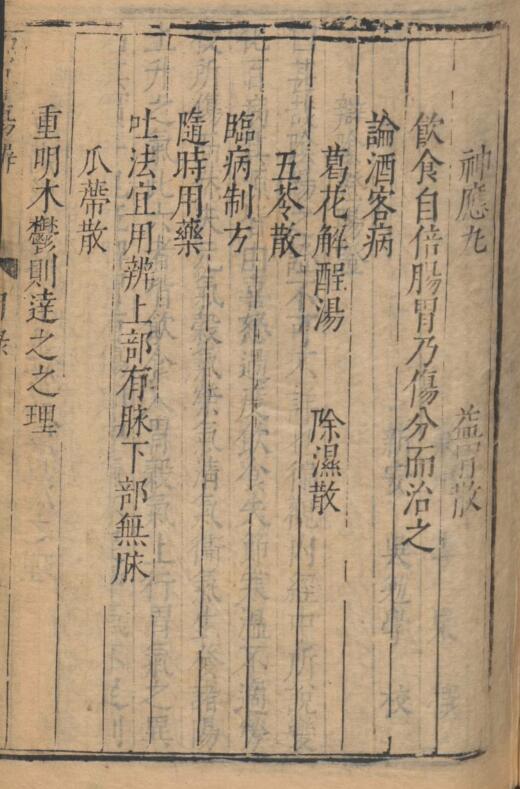 神應丸　益胃散
飲食自倍腸胃乃傷分而治之
論酒客病
葛花解酲湯　除濕散
五苓散
臨病制方
隨時用藥
吐法宜用辨上部有脉下部無脉
瓜蔕散
重明木鬱則達之之理